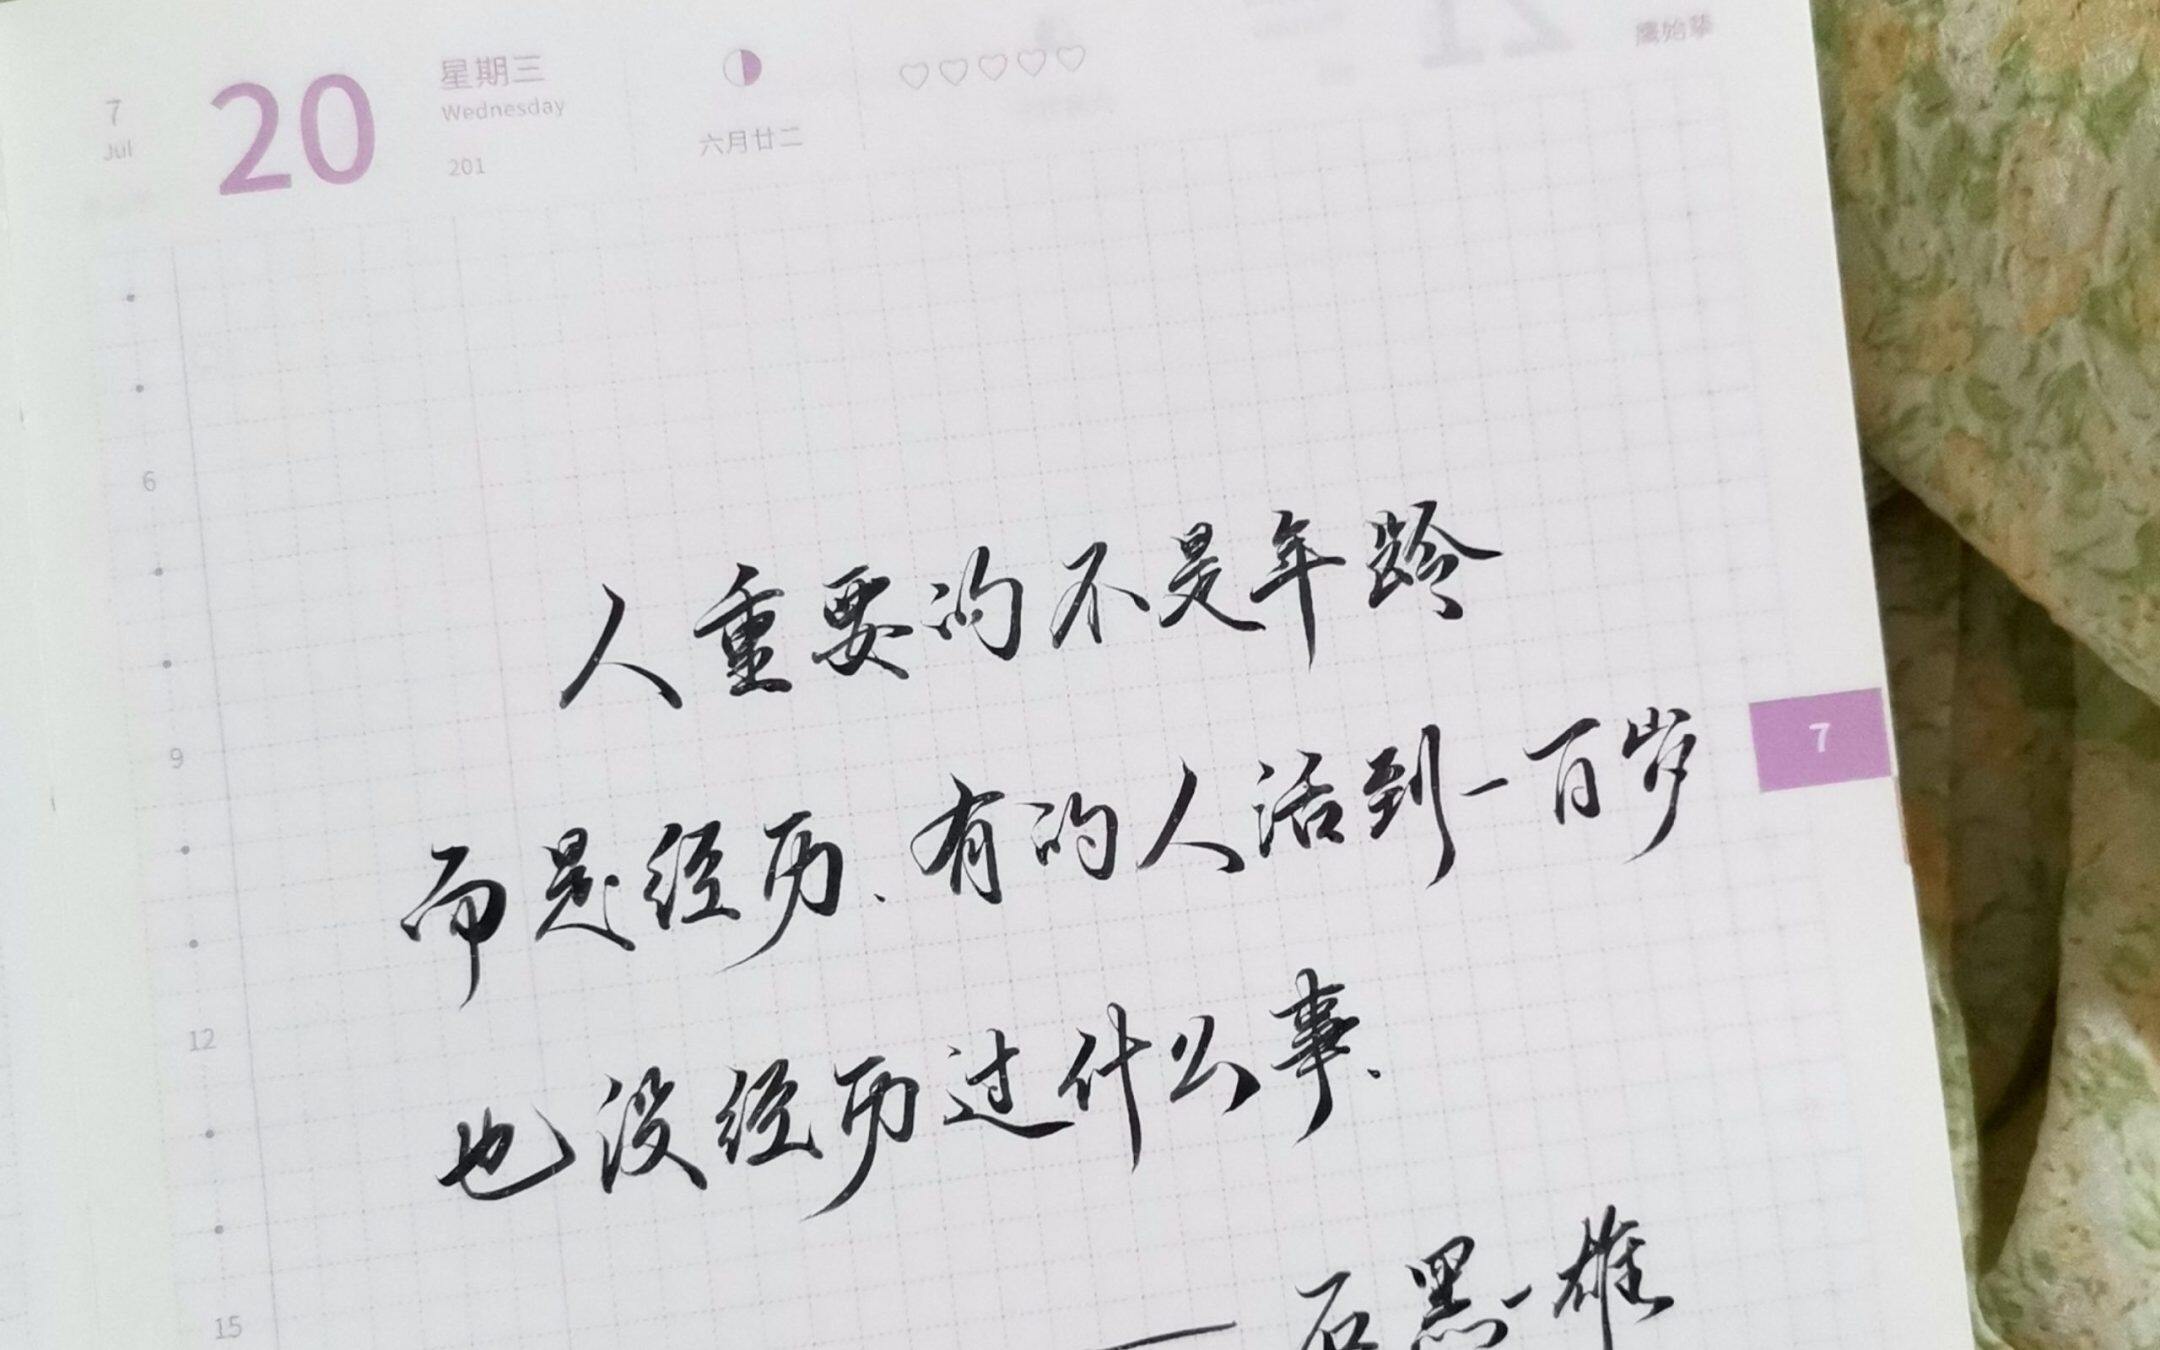 7
Jul
20
星期三
Wednesday
201
六月廿二
鷹始摯
21
6
人重要的不是年龄
7
9
而是经历、有的人活到一百岁
12
也没经历过什么事、
15
——石黑一雄